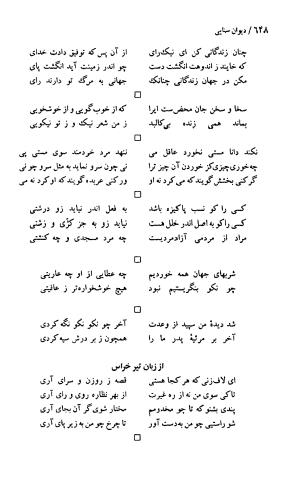 ۶۴۸ / دیوان سنایی
چنان زندگانی کن ای نیک‌رای از آن پس که توفیق دادت خدای
که خایند ز اندوهت انگشت دست چو اندر زمینت آید انگشت پای
مکن در جهان زندگانی چنانک جهانی به مرگ تو دارند رای
سخا و سخن جان محض‌ست ایرا که از خوب‌گویی و از خوشخویی
بماند همی زنده بی‌کالبد ز من شعر نیک و ز تو نیکویی
نکند دانا مستی نخورد عاقل می ننهد مرد خردمند سوی مستی پی
چه‌خوری‌چیزی‌کز خوردن آن چیز ترا نی چون سرو نماید به مثل سرو چو نی
گر کنی بخشش گویند که می کرد نه او ورکنی عربده گویند که او کرد نه می
کسی را کو نسب پاکیزه باشد به فعل اندر نیاید زو درشتی
کسی را کو به اصل اندر خلل هست نیاید زو به جز کژی و زشتی
مراد از مردمی آزادمردیست چه مرد مسجدی و چه کنشتی
شربهای جهان همه خوردیم چه عطایی از او چه عاریتی
چو نکو بنگریستیم نبود هیچ خوشخواره‌تر ز عافیتی
شد دیدهٔ من سپید از وعدت آخر چو نکو نکو نگه کردی
آخر بر مرثیهٔ پدر ما را همچون ز بر درش سیه کردی
از زبان تیر خراس
ای لاف‌زنی که هر کجا هستی قصه ز روزن و سرای آری
تاکی سوی من نه از ره غیرت از بهر نظاره روی و رای آری
پندی بشنو که تا چو مخدومم مختار شوی گر آن بجای آری
شو راستیی چو من به‌دست آور تا چرخ چو من به زیر پای آری